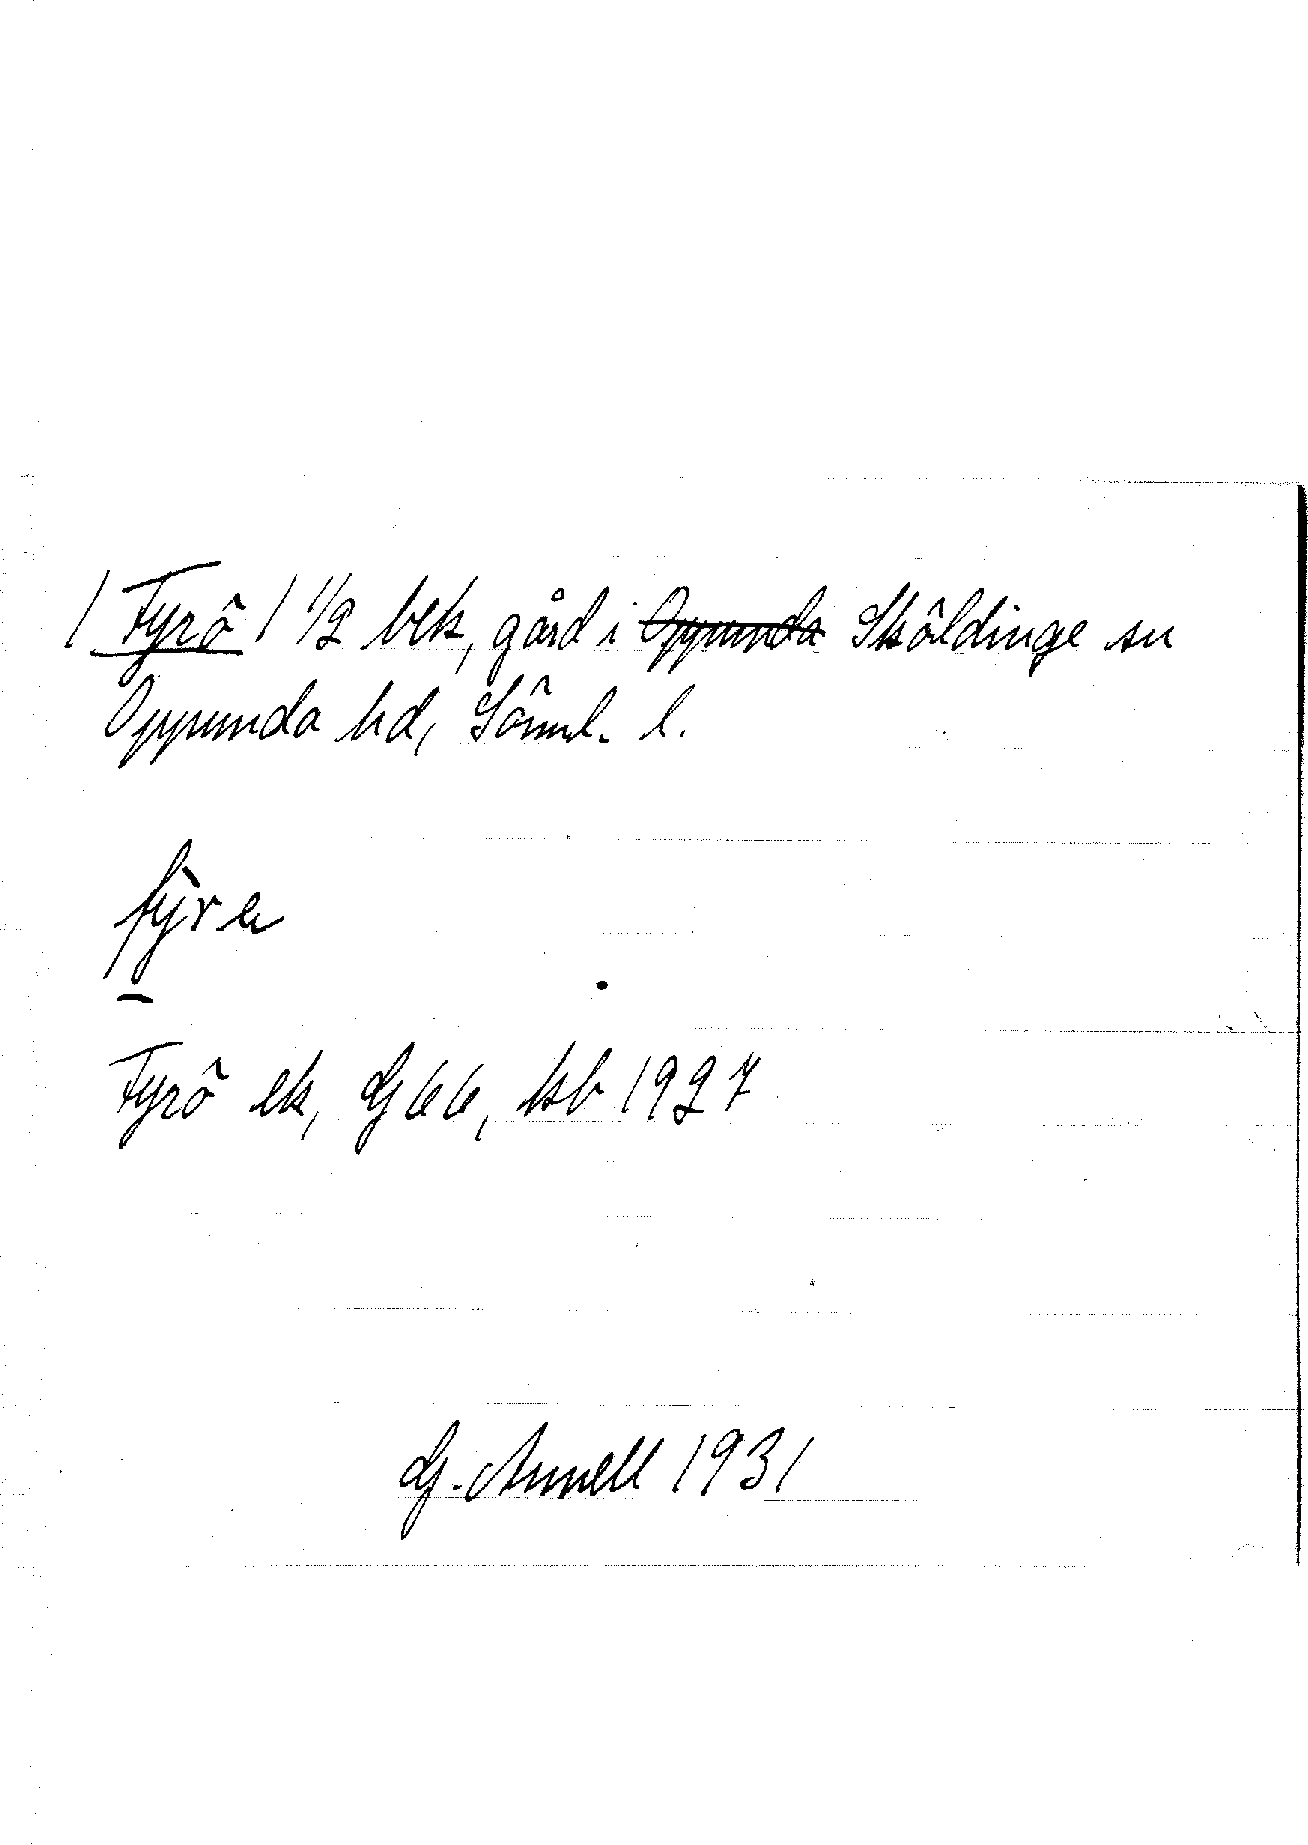 / Fyrö / 1/2 bek, gård i Oppunda Sköldinge sn
Oppunda hd, Söml. l.
fỳra
Fyrö ek, G 66, kb 1927
G. Annell 1931